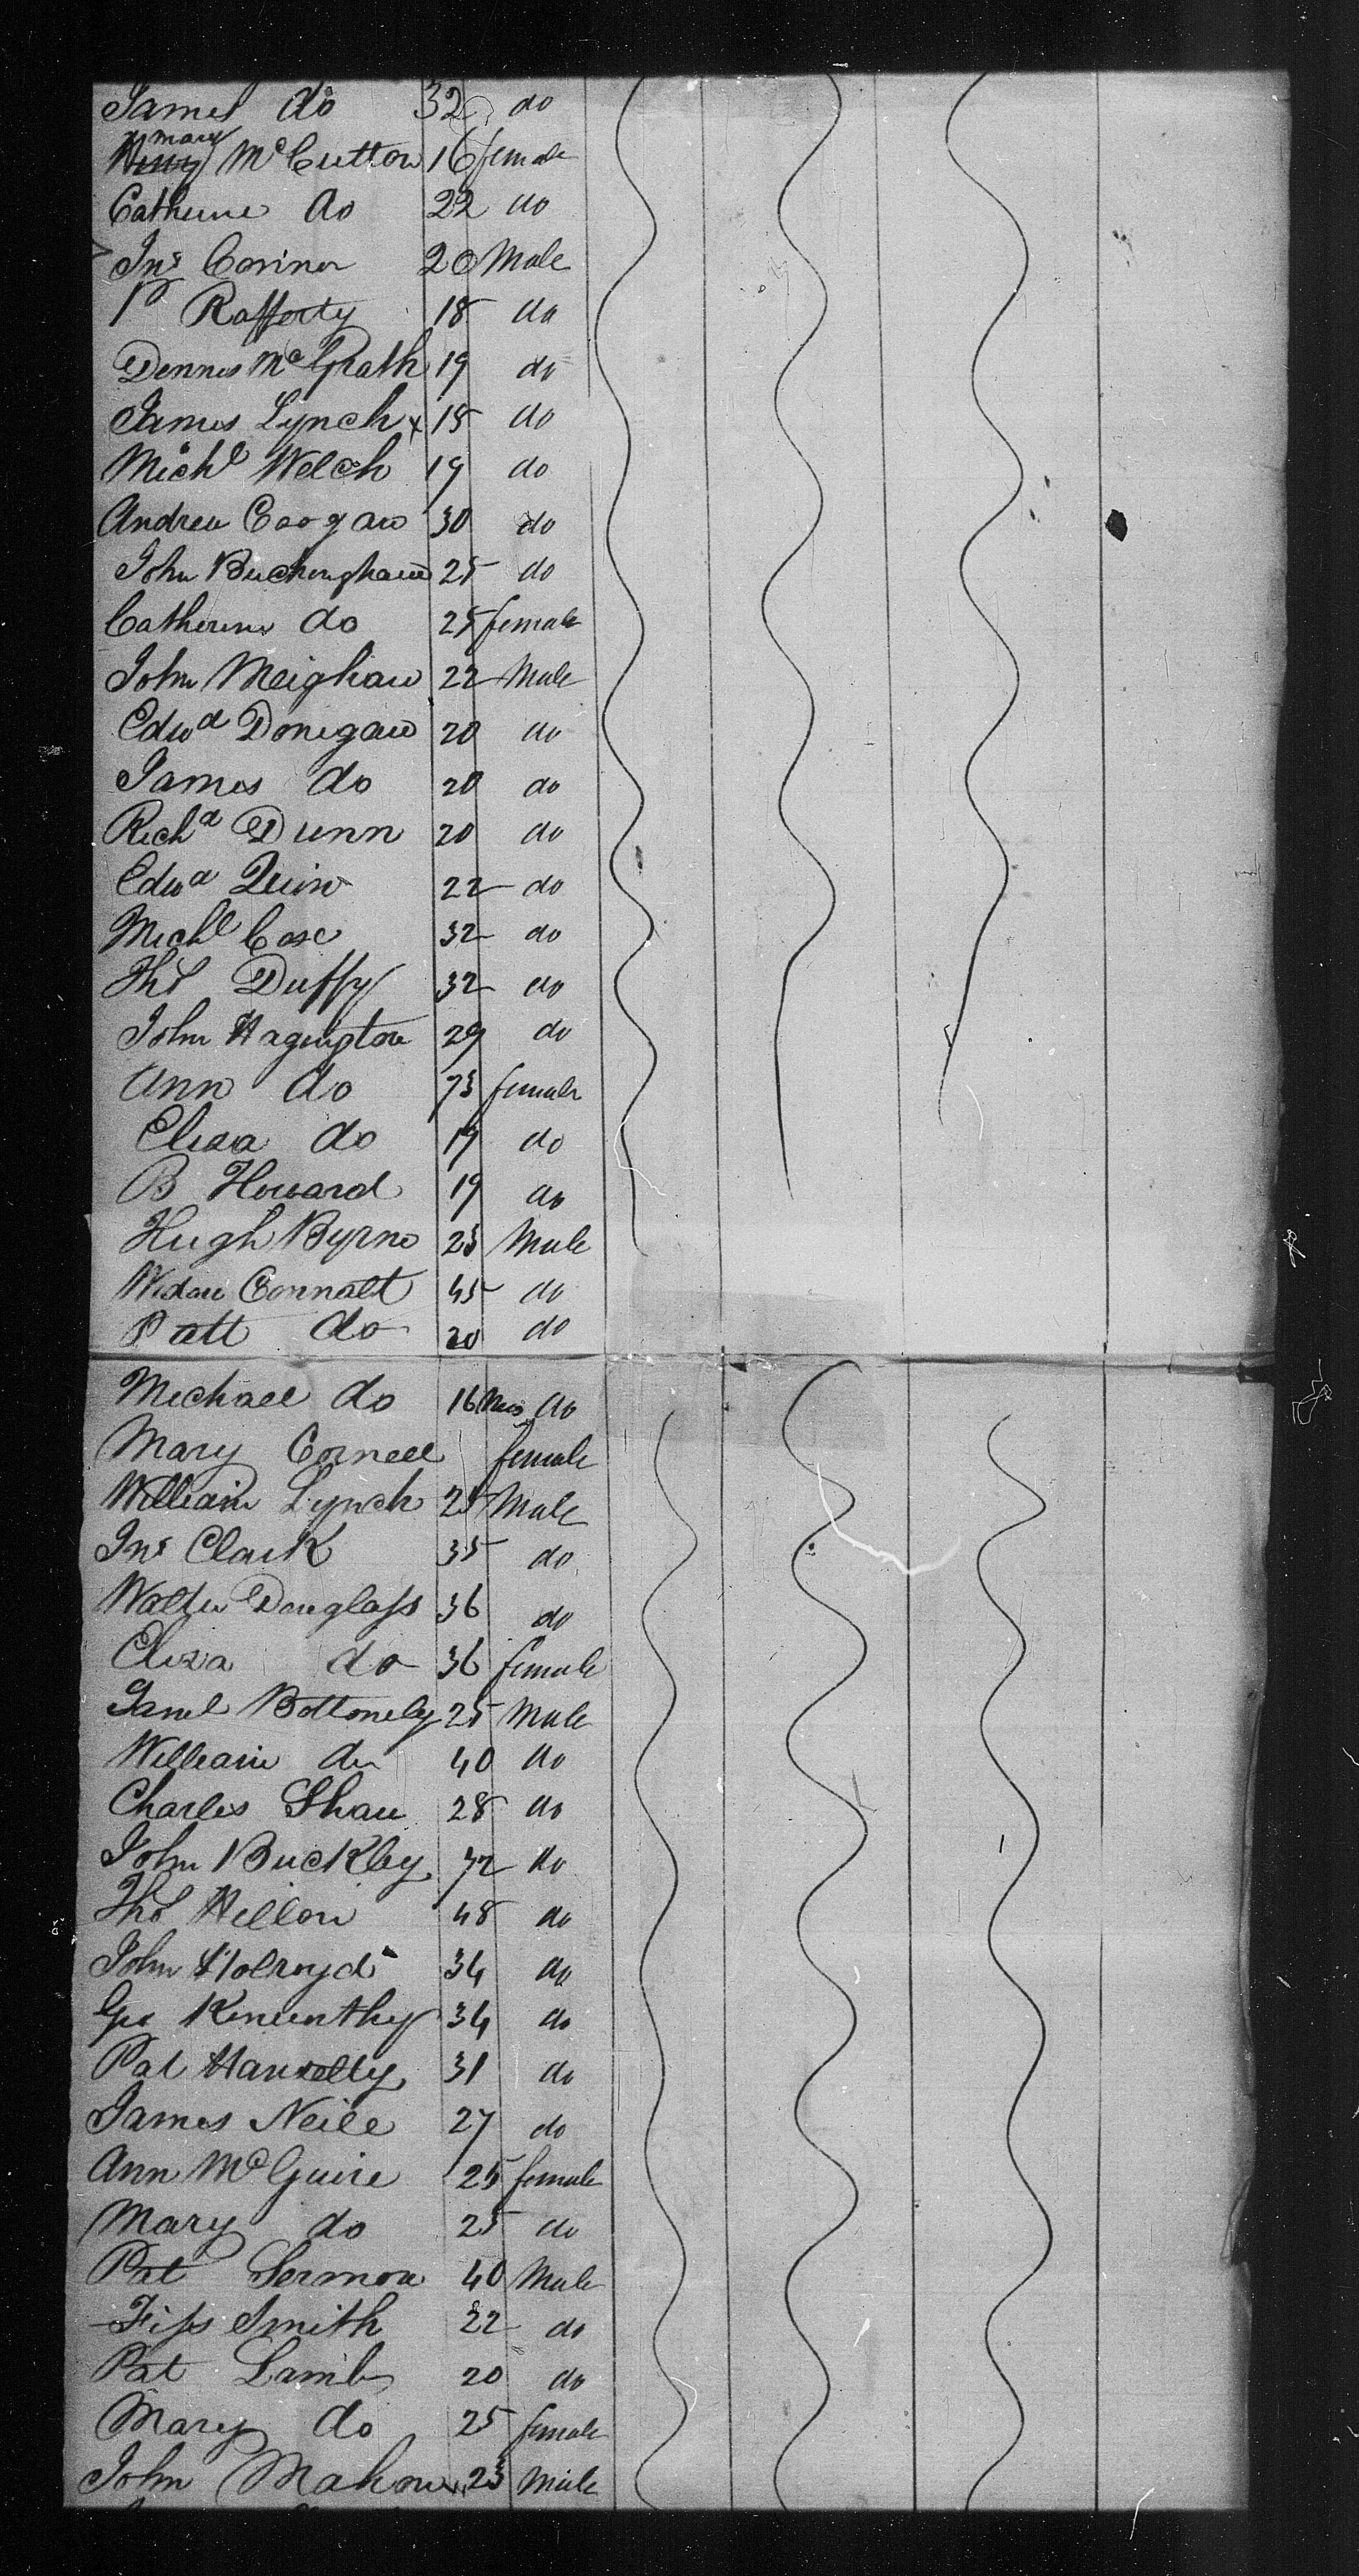 James do 32 do
Mary McCutton 16 female
Catherine do 22 do
Jno Connor 20 Male
P Rafferty 18 do
Dennis McGrath 19 do
James Lynch x 18 do
Michl Welch 19 do
Andrew Coogan 30 do
John Buckingham 25 do
Catherine do 25 female
John Meighan 22 Male
Edwd Donegan 20 do
James do 20 do
Richd Dunn 20 do
Edwd Quin 22 do
Michl Case 32 do
Ths Duffy 32 do
John Hagington 29 do
Ann do 73 female
Eliza do 19 do
B Howard 19 do
Hugh Byrne 23 Male
Widow Connalt 45 do
Patt do 20 do
Michael do 16 Mos do
Mary Cornell female
William Lynch 25 Male
Jno Clark 35 do
Walter Douglass 36 do
Eliza do 36 female
Bottomely 25 Male
William do 40 do
Charles Shaw 28 do
John Buckley 72 do
Ths Hillon 48 do
John Holroyd 34 do
Geo 34 do
Pat 31 do
James Neill 27 do
Ann McGuire 25 female
Mary do 25 do
Pat Sermon 40 Male
Smith 22 do
Pat Lamb 20 do
Mary do 25 female
John Mahon 23 Male